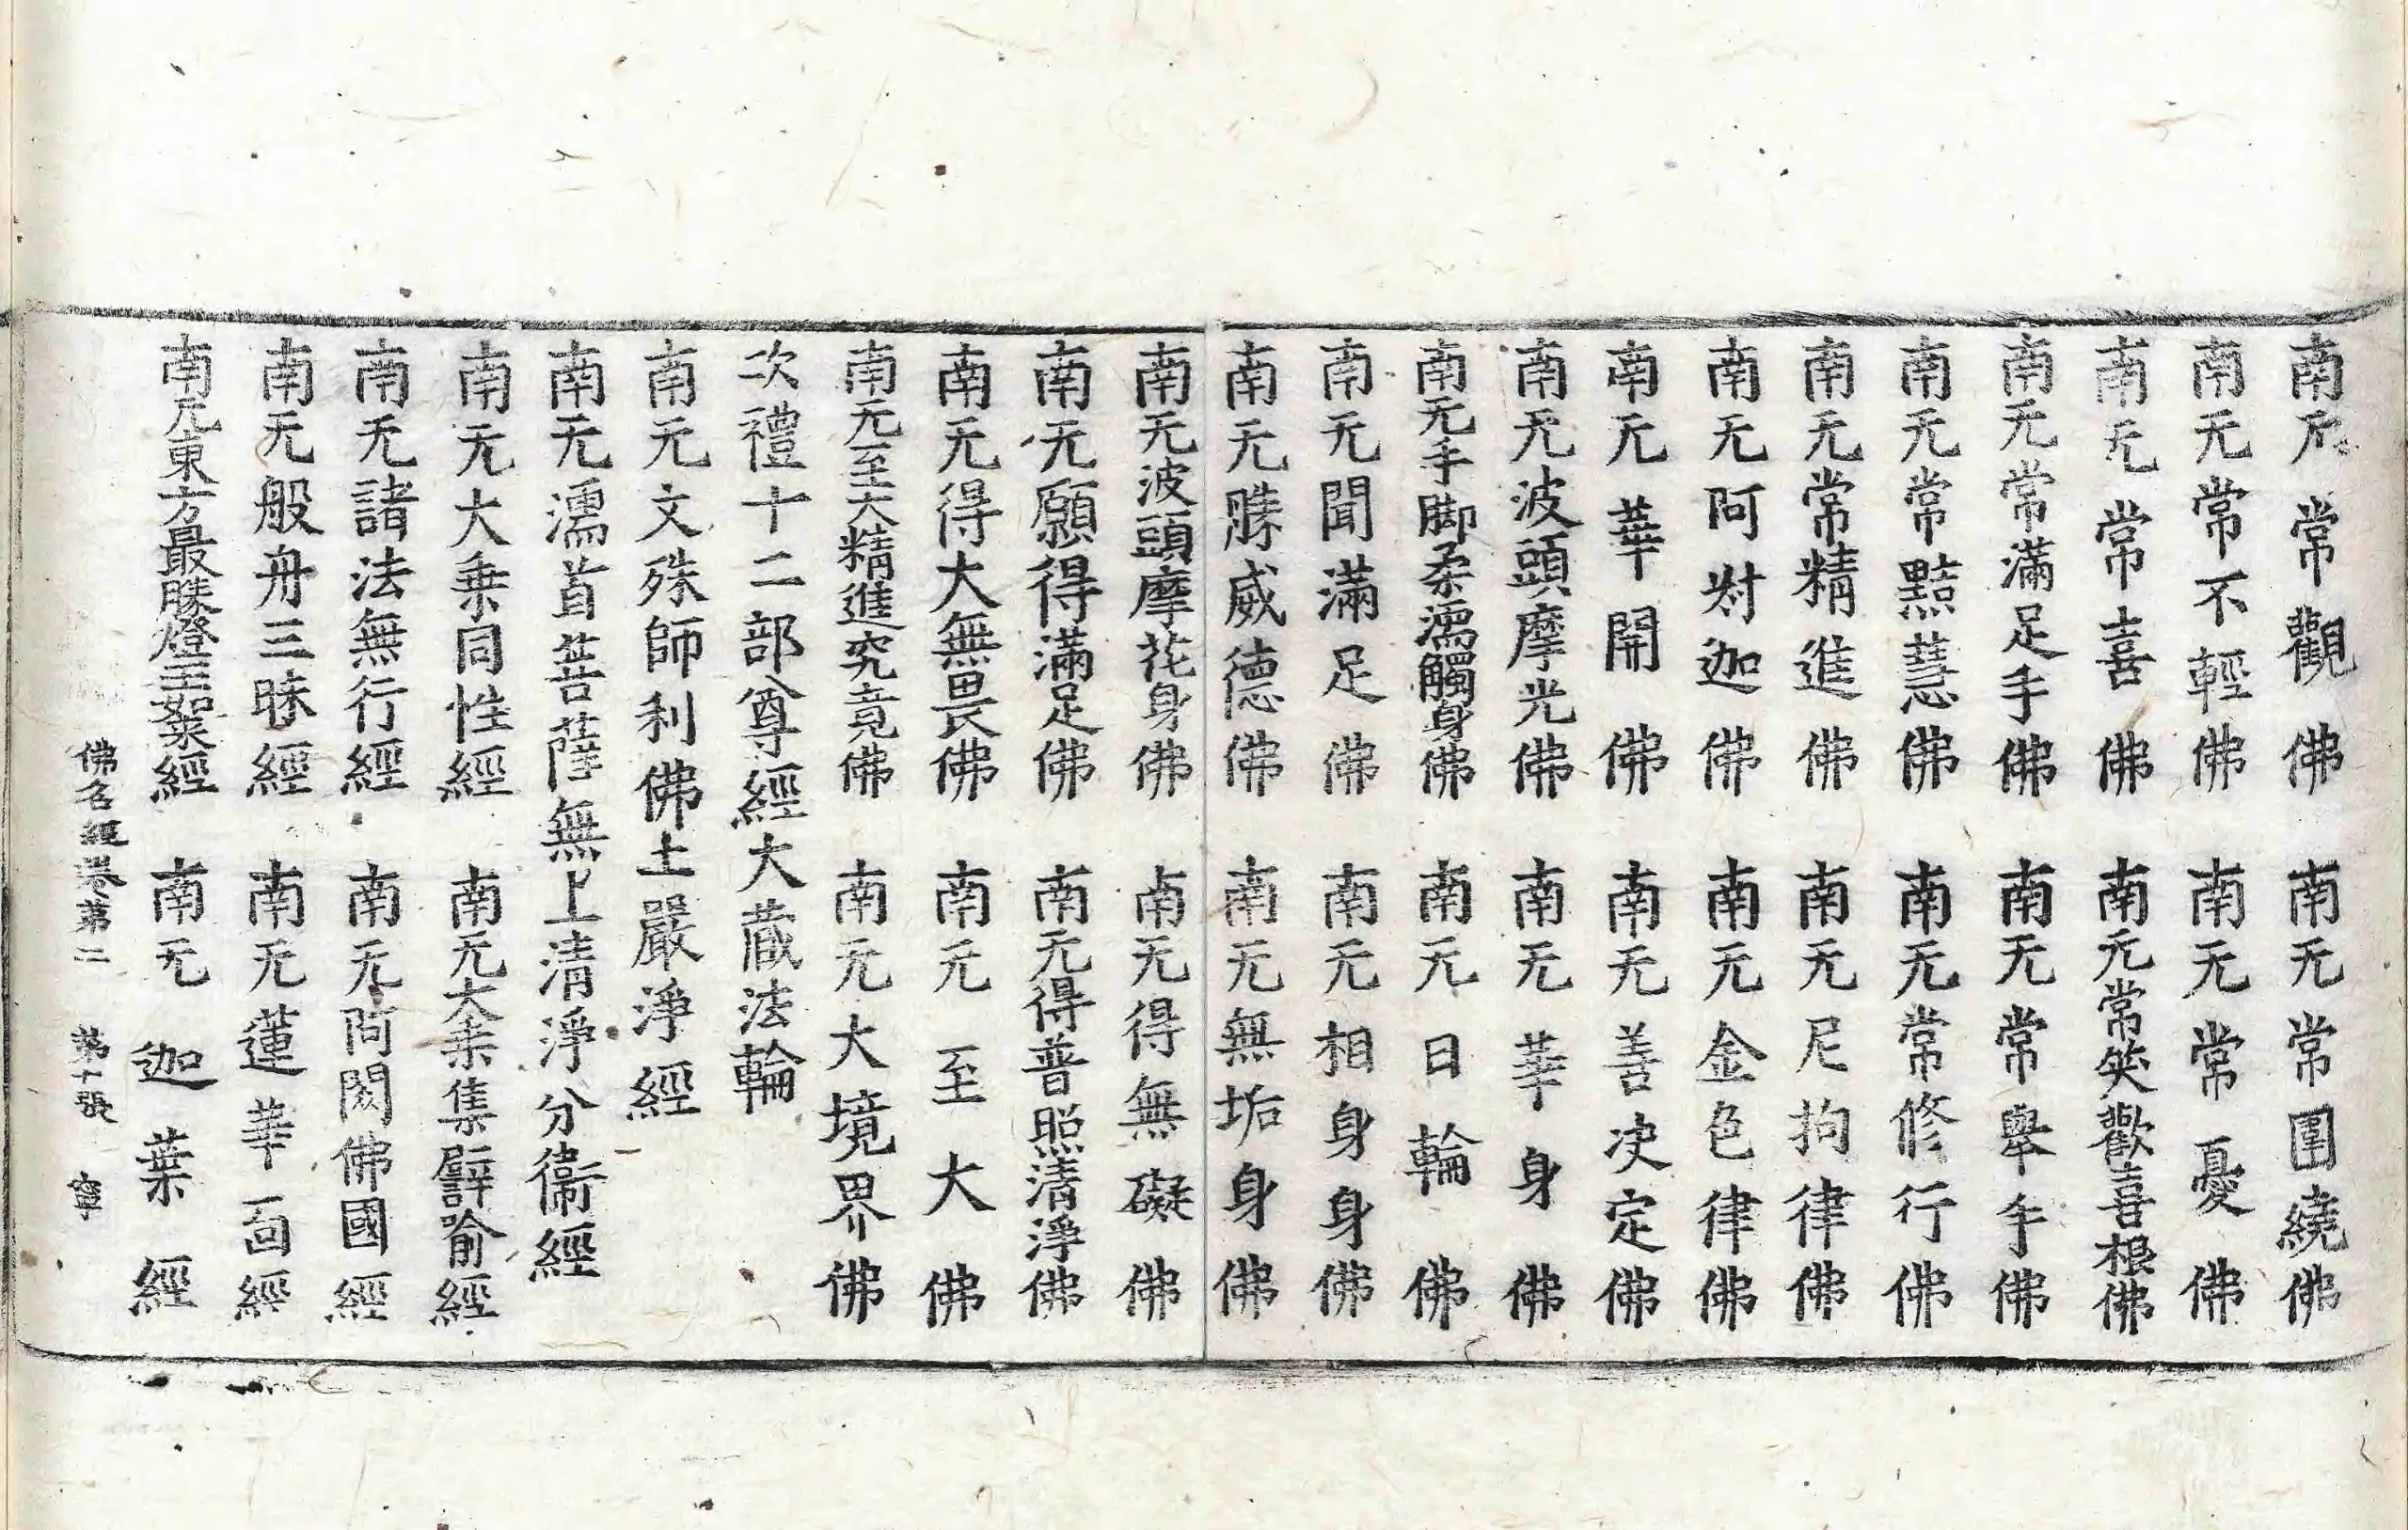 南无常觀佛　南无常圍繞佛
南无常不輕佛　南无常憂佛
南无常喜佛　南无常笑歡喜根佛
南无常滿足手佛　南无常舉手佛
南无常黠慧佛　南无常修行佛
南无常精進佛　南无尼拘律佛
南无阿對迦佛　南无金色律佛
南无華開佛　南无善决定佛
南无波頭摩光佛　南无華身佛
南无手脚柔濡觸身佛　南无日輪佛
南无聞滿足佛　南无相身身佛
南无勝威德佛　南无無垢身佛
南无波頭摩花身佛　南无得無礙佛
南无願得滿足佛　南无得普照清淨佛
南无得大無畏佛　南无至大佛
南无至大精進究竟佛　南无大境界佛
次禮十二部尊經大藏法輪
南无文殊師利佛土嚴淨經
南无濡首菩薩無上清淨分衞經
南无大乗同性經　南无大乗集譬喻經
南无諸法無行經　南无阿閦佛國經
南无般舟三昧經　南无蓮華面經
南无東方最勝燈王如來經　南无迦葉經
佛名經卷第二　第十張　寧